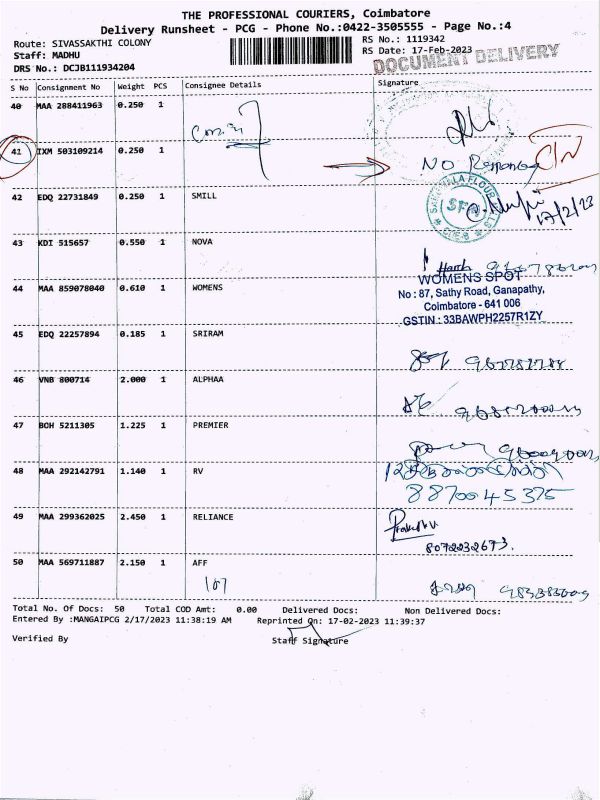 THE PROFESSIONAL COURIERS, Coimbatore
Delivery Runsheet - PCG - Phone No.:0422-3505555 - Page No.:4
Route: SIVASSAKTHI COLONY
RS No.: 1119342
Staff: MADHU
RS Date: 17-Feb-2023
DRS No.: DCJB111934204
DOCUMENT DELIVERY
S No Consignment No Weight PCS Consignee Details Signature
40 MAA 288411963 0.250 1
41 IXM 503109214 0.250 1
No Response
42 EDQ 22731849 0.250 1 SMILL
SFM
17/2/23
43 KDI 515657 0.550 1 NOVA
44 MAA 859078040 0.610 1 WOMENS
WOMENS SPOT
No : 87, Sathy Road, Ganapathy,
Coimbatore - 641 006
GSTIN : 33BAWPH2257R1ZY
45 EDQ 22257894 0.185 1 SRIRAM
46 VNB 800714 2.000 1 ALPHAA
47 BOH 5211305 1.225 1 PREMIER
48 MAA 292142791 1.140 1 RV
8870045375
49 MAA 299362025 2.450 1 RELIANCE
8072232673.
50 MAA 569711887 2.150 1 AFF
107
Total No. Of Docs: 50 Total COD Amt: 0.00 Delivered Docs: Non Delivered Docs:
Entered By :MANGAIPCG 2/17/2023 11:38:19 AM Reprinted On: 17-02-2023 11:39:37
Verified By
Staff Signature